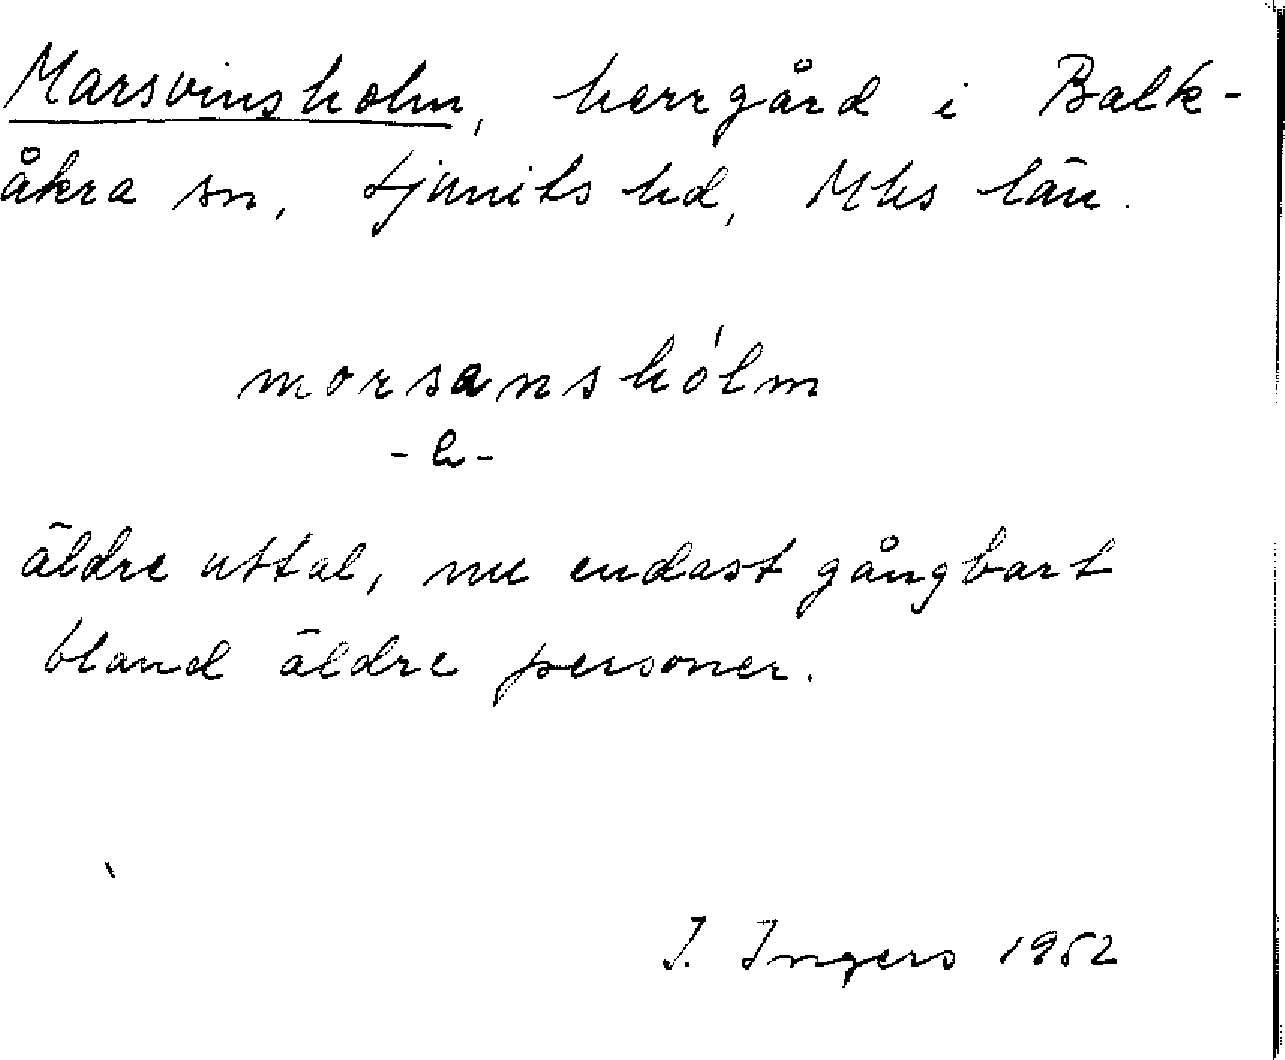 Marsvinsholm, herrgård i Balk-
åkra sn, Ljunits hd, Mhs län.
morsanshólm
- e -
äldre uttal, nu endast gångbart
bland äldre personer.
I. Ingers 1952